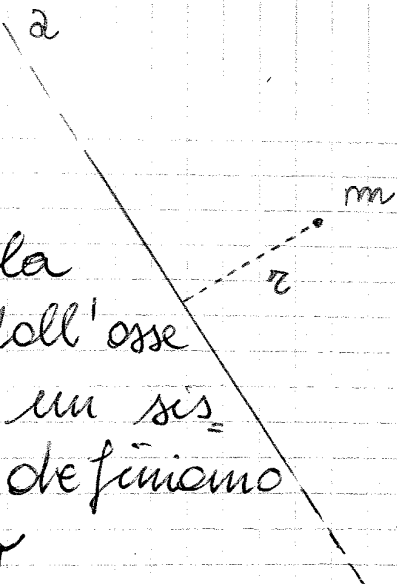 a
m
r
la
dall'asse
un sis=
definiamo